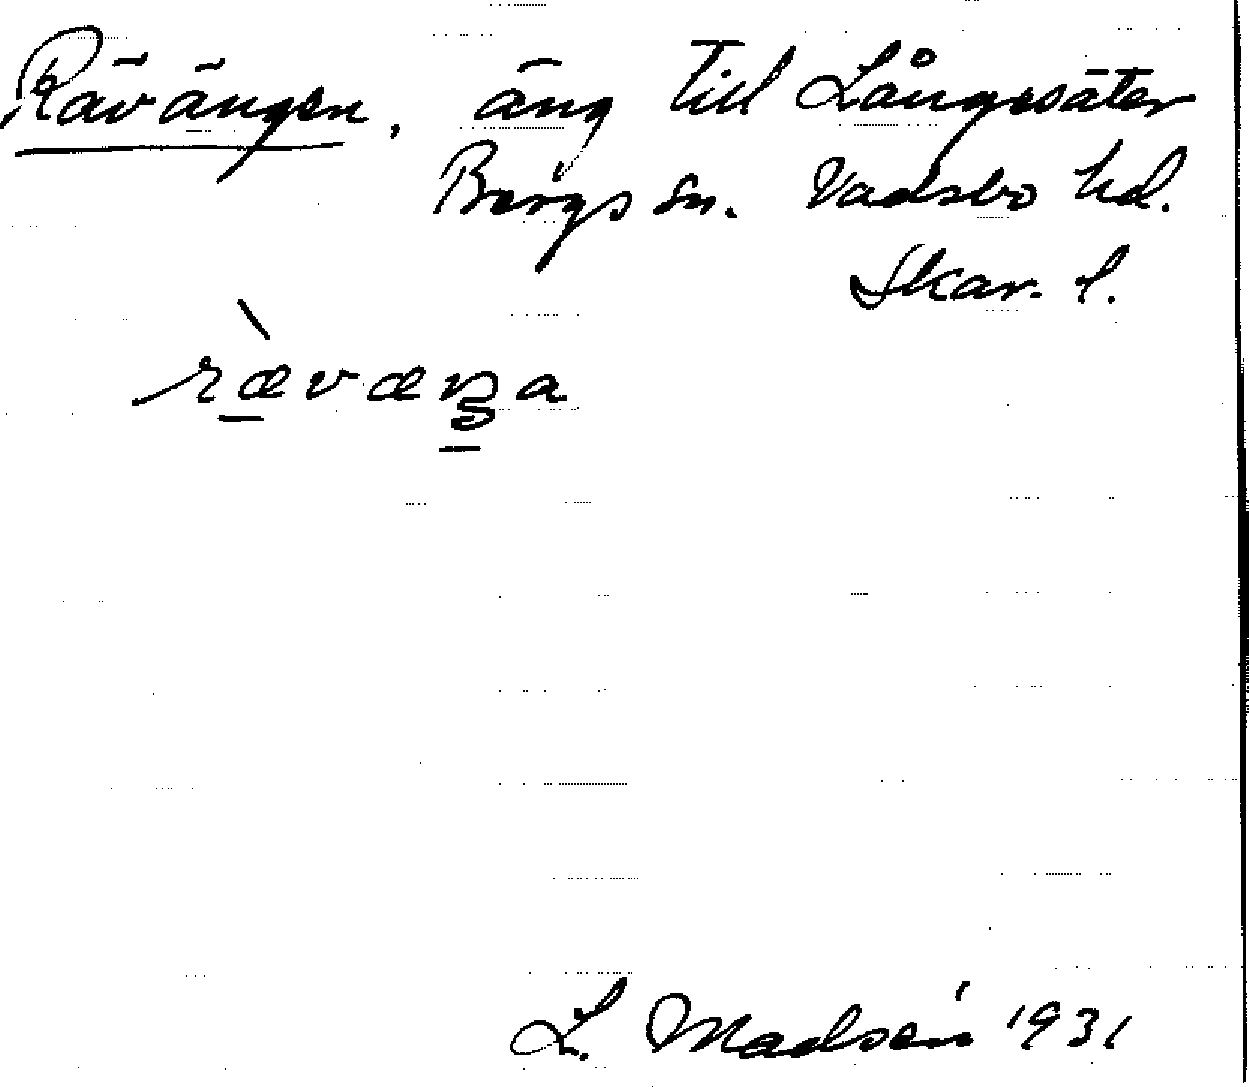 Rävängen, äng till Långesäter
Bergs sn. Vadsbo hd.
Skar. l.
rævæŋa
L. Madsén 1931